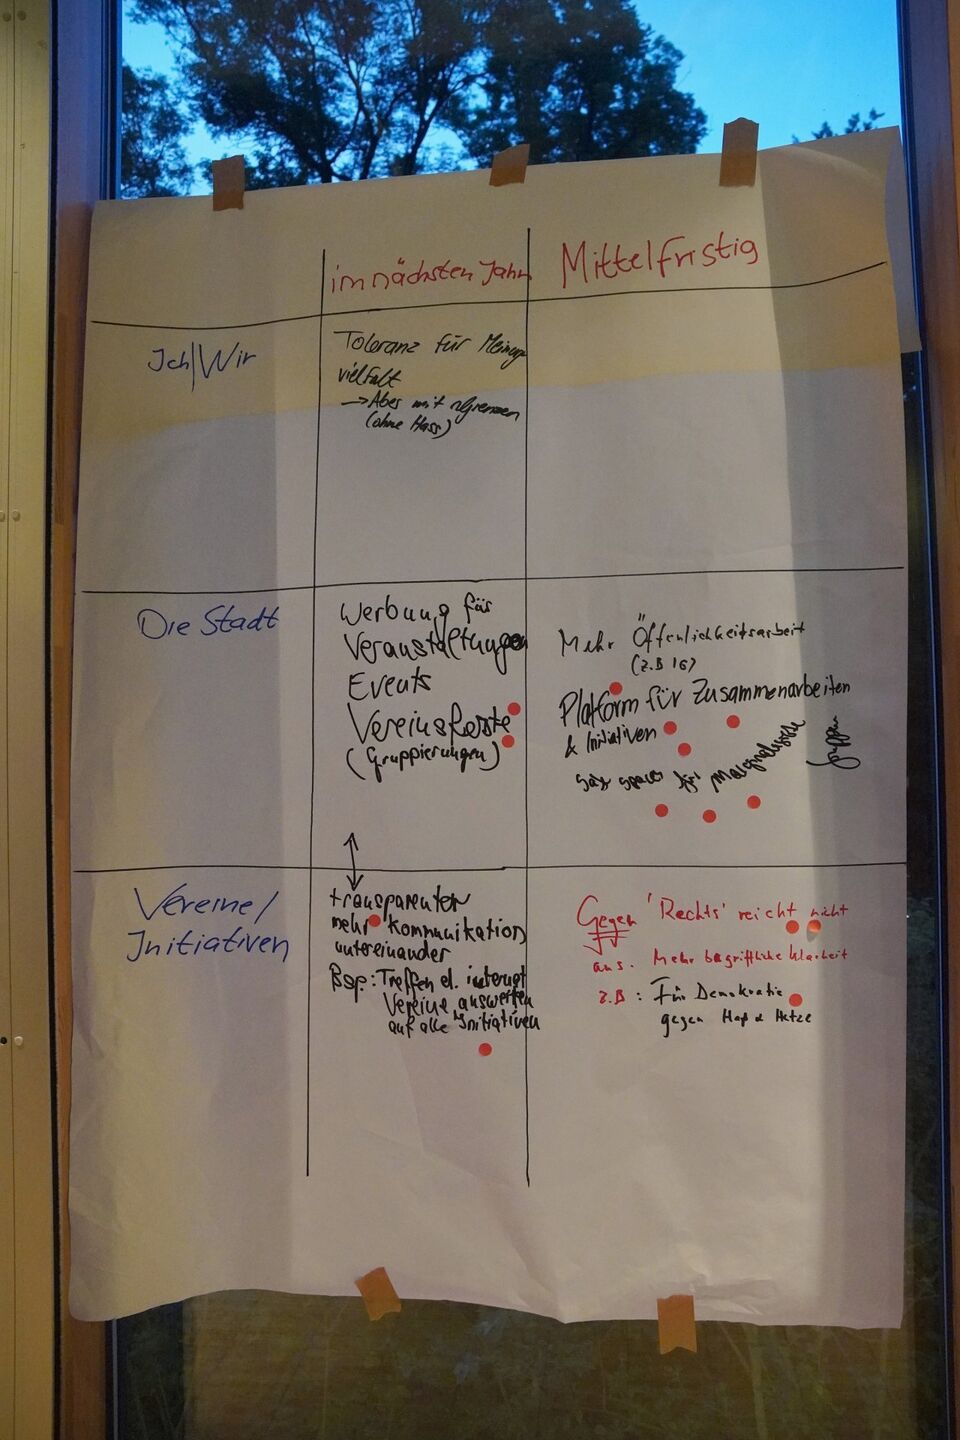 im nächsten Jahr
Mittelfristig
Ich/Wir
Toleranz für Meinungs
vielfalt
→ Aber mit Grenzen
(ohne Hass)
Die Stadt
Werbung für
Veranstaltungen
Events
Vereinsfeste
(Gruppierungen)
Mehr Öffenlichkeitsarbeit
(z.B IG)
Platform für Zusammenarbeiten
& Initiativen
safe spaces für marginalisierte
Gruppen
Vereine/
Initiativen
transparenter
mehr Kommunikation
untereinander
Bsp: Treffen d. internat
Vereine ausweiten
auf alle Initiativen
Gegen 'Rechts' reicht nicht
aus. Mehr begriffliche Klarheit
z.B: Für Demokratie
gegen Haß & Hetze